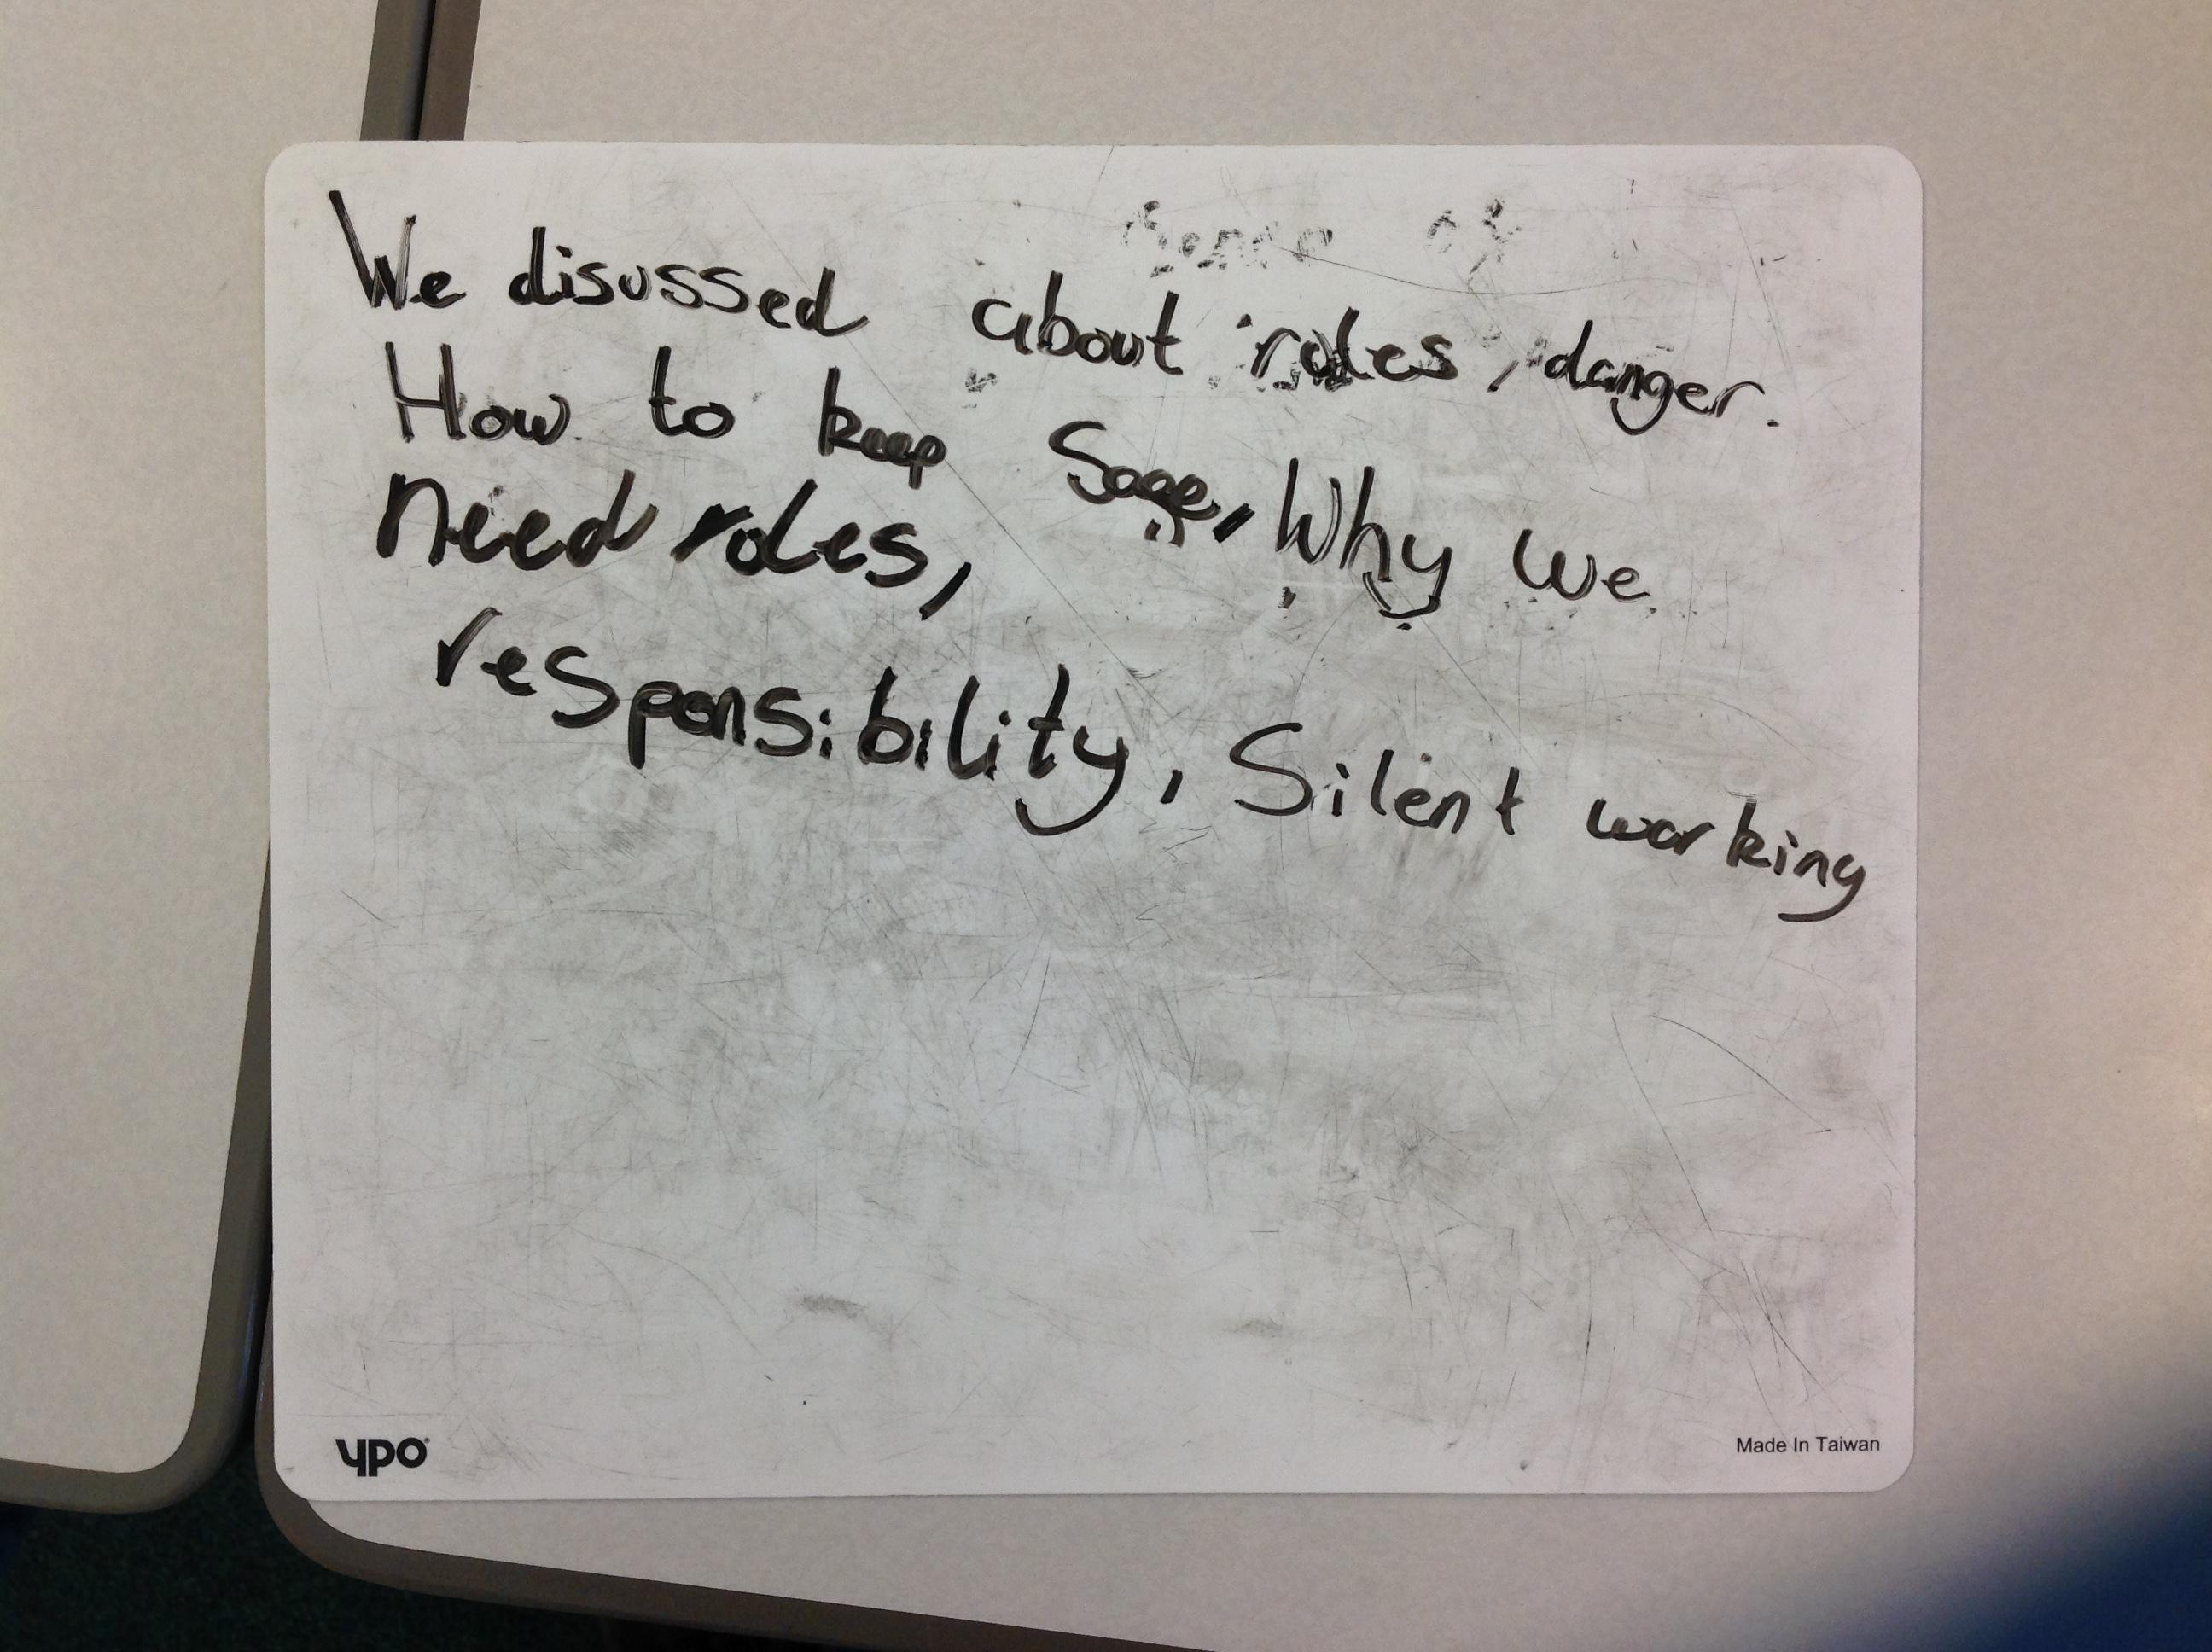 We disussed about roles, danger.
How to keep Sage, Why we
need roles,
responsibility, Silent working
ypo
Made In Taiwan